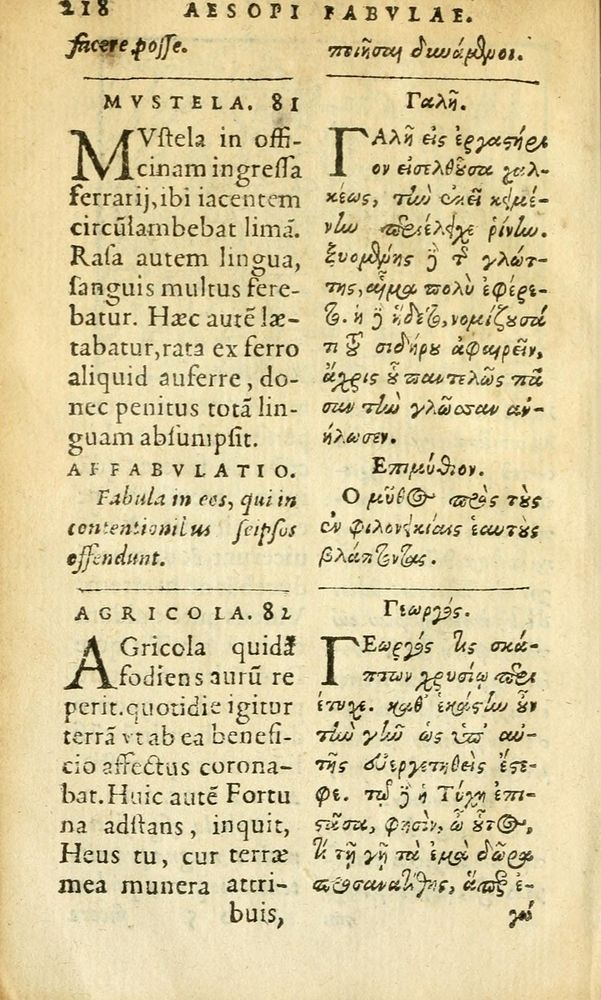 218 AESOPI FABVLAE.
facere posse.
MVSTELA. 81
MVstela in offi-
cinam ingressa
ferrarij, ibi iacentem
circũlambebat limã.
Rasa autem lingua,
sanguis multus fere-
batur. Hæc autẽ læ-
tabatur, rata ex ferro
aliquid auferre, do-
nec penitus totã lin-
guam absumpsit.
AFFABVLATIO.
Fabula in eos, qui in
contentionibus seipsos
offendunt.
AGRICOLA. 82
AGricola quidã
fodiens aurũ re
perit. quotidie igitur
terrã vt ab ea benefi-
cio affectus corona-
bat. Huic autẽ Fortu
na adstans, inquit,
Heus tu, cur terræ
mea munera attri-
buis,
ποιῆσαι δυνάμενοι.
Γαλῆ.
ΓΑλῆ εἰς ἐργαστήρι
ον εἰσελθοῦσα χαλ-
κέως, τὴν ἐκεῖ κειμέ-
νην περιέλειχε ῥίνην.
ξυομένης δὲ τῆς γλώτ-
της, αἷμα πολὺ ἐφέρε-
το. ἡ δὲ ἥδετο, νομίζουσά
τι τοῦ σιδήρου ἀφαιρεῖν,
ἄχρις οὗ παντελῶς πᾶ
σαν τὴν γλῶσσαν ἀν-
ήλωσεν.
Ἐπιμύθιον.
Ὁ μῦθος πρὸς τοὺς
ἐν φιλονεικίαις ἑαυτοὺς
βλάπτοντας.
Γεωργός.
ΓΕωργός τις σκά-
πτων χρυσίῳ περι
έτυχε. καθ' ἑκάστην οὖν
τὴν γῆν ὡς ὑπ' αὐ-
τῆς εὐεργετηθεὶς ἔστε-
φε. τῷ δὲ ἡ Τύχη ἐπι-
στᾶσα, φησὶν, ὦ οὗτος,
τί τῇ γῇ τὰ ἐμὰ δῶρα
προσανατίθης, ἅπερ ἐ-
γώ